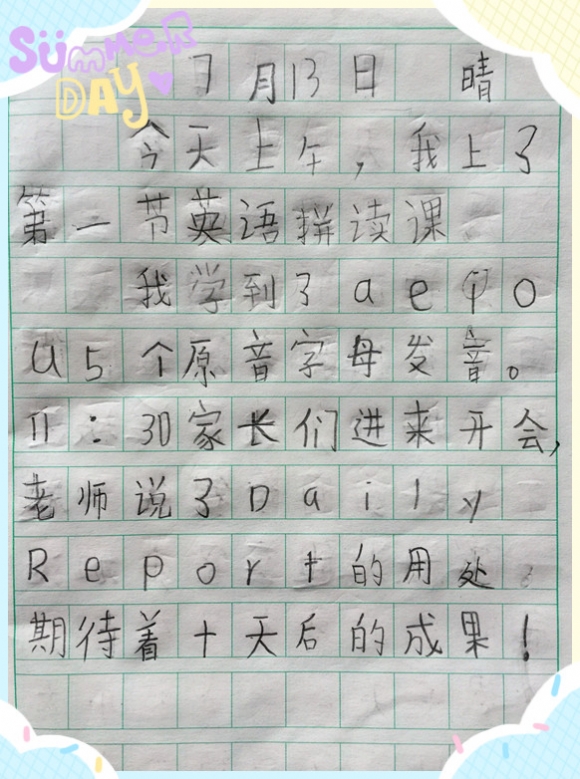 SUMMER
DAY
7月13日 晴
今天上午，我上了
第一节英语拼读课
我学到了a e i o
u 5个原音字母发音。
11：30家长们进来开会，
老师说了Daily
Report的用处。
期待着十天后的成果！